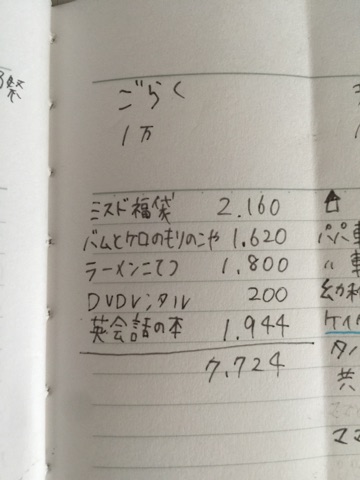 ごらく
1万
ミスド福袋 2.160
バムとケロのもりのこや 1.620
ラーメンこてつ 1.800
DVDレンタル 200
英会話の本 1.944
7.724